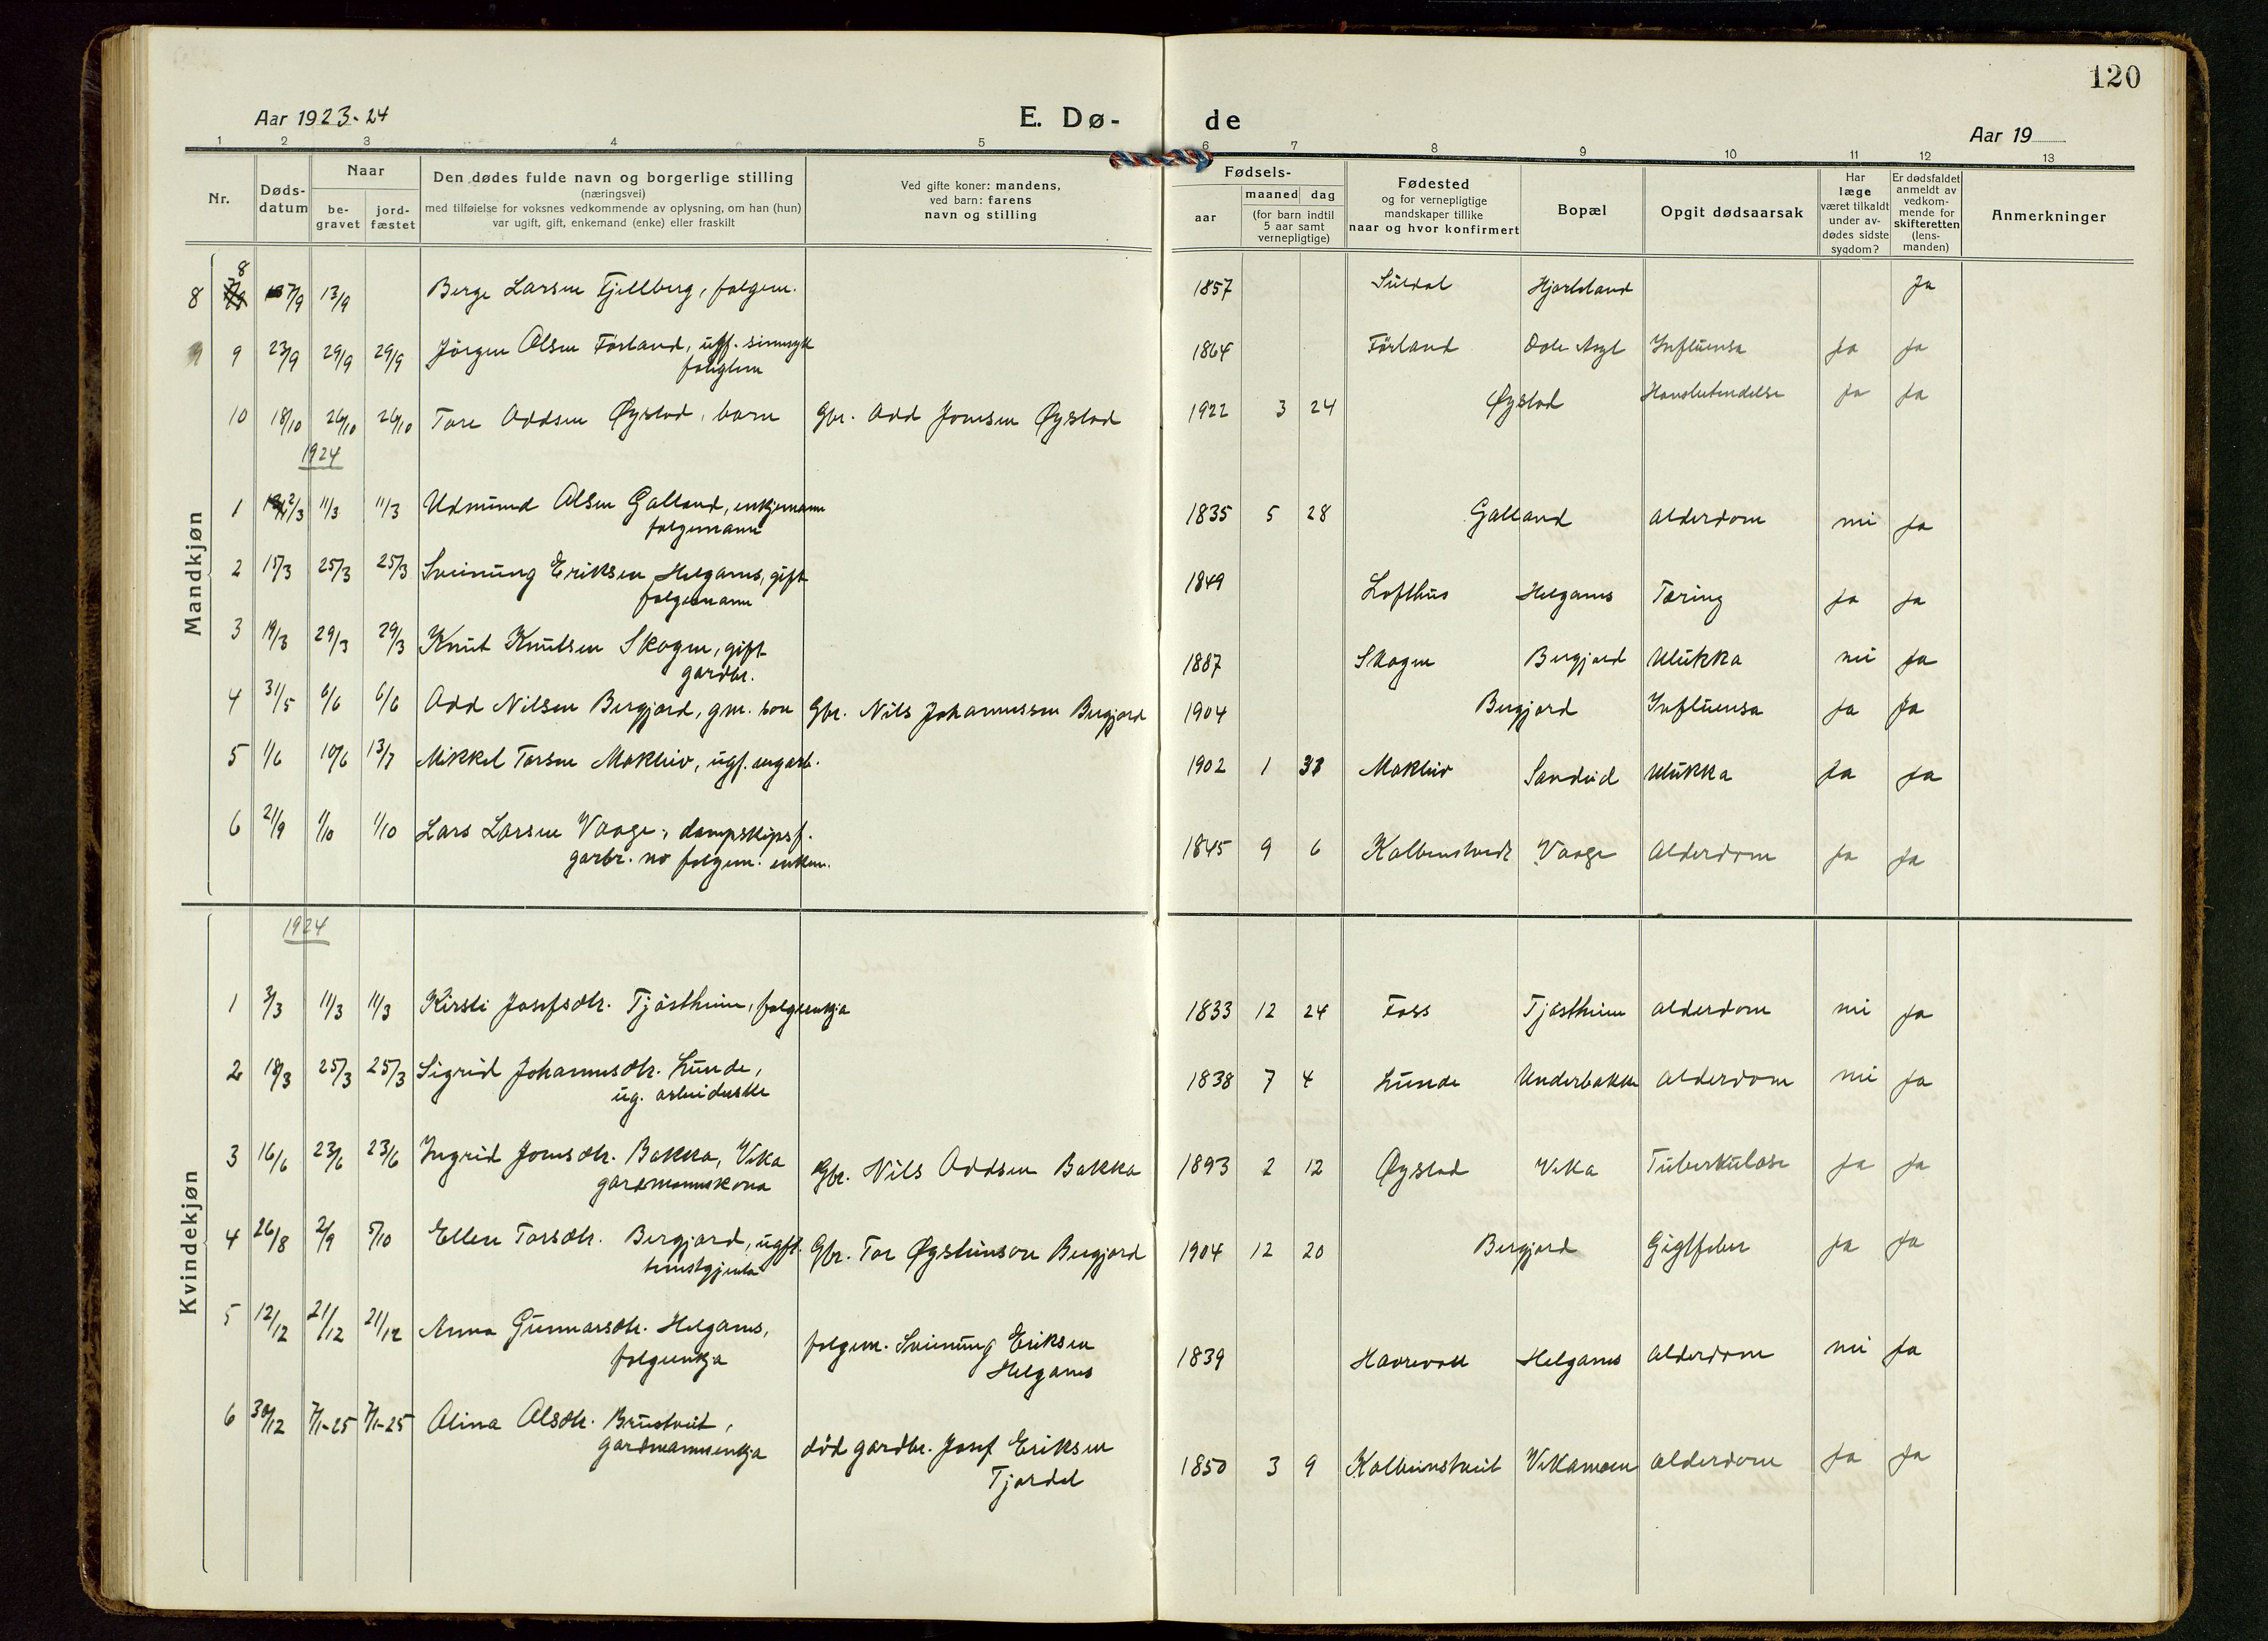 120
Aar 1923-24
E. Dø- de
Aar 19
1 2 3 4 5 6 7 8 9 10 11 12 13
Nr.
Døds-datum
Naar
be-gravet
jord-fæstet
Den dødes fulde navn og borgerlige stilling
(næringsvei)
med tilføielse for voksnes vedkommende av oplysning, om han (hun)
var ugift, gift, enkemand (enke) eller fraskilt
Ved gifte koner: mandens,
ved barn: farens
navn og stilling
Fødsels-
aar
maaned dag
(for barn indtil
5 aar samt
vernepligtige)
Fødested
og for vernepligtige
mandskaper tillike
naar og hvor konfirmert
Bopæl
Opgit dødsaarsak
Har
læge
været tilkaldt
under av-
dødes sidste
sygdom?
Er dødsfaldet
anmeldt av
vedkom-
mende for
skifteretten
(lens-
manden)
Anmerkninger
Mandkjøn
8 8 7/9 13/9 Berge Larsen Fjellberg, folgem. 1857 Suldal Hjorteland Ja
9 23/9 29/9 29/9 Jörgen Olsen Förland, ugf. sinnsyk 1864 Förland Dale Asyl Influensa Ja Ja
10 18/10 26/10 26/10 Tore Oddsen Øystad, barn Gbr. Odd Jonesen Øystad 1922 3 24 Øystad Ja Ja
1924
1 2/3 11/3 11/3 Udmund Olsen Galland, enkjemann 1835 5 28 Galland Alderdom nei Ja
folgemann
2 15/3 25/3 25/3 Sveinung Eriksen Helganes, gift 1849 Lofthus Helganes Tæring Ja Ja
folgemann
3 19/3 29/3 29/3 Knut Knutsen Skogen, gift 1887 Skogen Bergjord Ulukka nei Ja
gardbr.
4 31/5 6/6 6/6 Odd Nilsen Bergjord, gm. son Gbr. Nils Johannessen Bergjord 1904 Bergjord Influensa Ja Ja
5 1/6 10/6 13/7 Mikkel Torsen Mokleiv, ugf. 1902 1 Mokleiv Sandeid Ulukka Ja Ja
6 21/9 1/10 1/10 Lars Larsen Vaage, dampskipsf. 1845 9 6 Kolbenstveit Vaage Alderdom Ja Ja
garbr. no folgem. enkem.
Kvindekjøn
1924
1 3/3 11/3 11/3 Kirsti Josefsdtr. Tjöstheim, folgeenkja 1833 12 24 Foss Tjöstheim Alderdom nei Ja
2 18/3 25/3 25/3 Sigrid Johannesdtr. Lunde, 1838 7 4 Lunde Underbakke Alderdom nei Ja
ug. arbeiderske
3 16/6 23/6 23/6 Ingrid Jonesdtr. Bakka, Vika Gbr. Nils Oddsen Bakka 1893 2 12 Øystad Vika Tuberkulose Ja Ja
gardmannskona
4 26/8 2/9 5/10 Ellen Torsdtr. Bergjord, ugft. Gbr. Tor Øysteinson Bergjord 1904 12 20 Bergjord Gigtfeber Ja Ja
tenestgjenta
5 12/12 21/12 21/12 Anna Gunnarsdtr. Helganes, folgem. Sveinung Eriksen 1839 Havrevoll Helganes Alderdom nei Ja
folgeenkja Helganes
6 30/12 7/1-25 7/1-25 Olina Olsdtr. Brustveit, död gardbr. Josef Eriksen 1850 3 9 Kolbeinstveit Vikamoen Alderdom Ja Ja
gardmannsenkja Tjordal